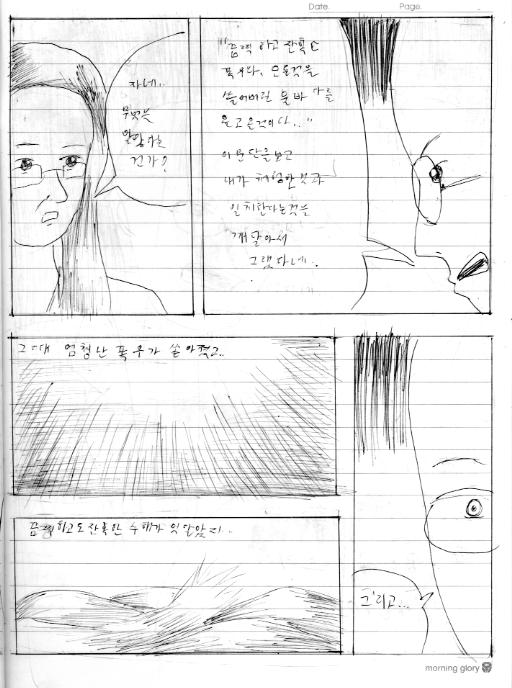 Date. Page.
자네..
무엇을
말함하는
건가?
"끔찍하고 잔혹한
폭우와, 모든것을
쓸어버릴 홍바
몰고올것이다.."
이 문단을보고
내가 체험한것과
일치한다는것을
깨달아서
그랬다네..
그때 엄청난 폭우가 쏟아졌고..
끔찍하고도 잔혹한 수해가 잇달았지..
그리고...
morning glory